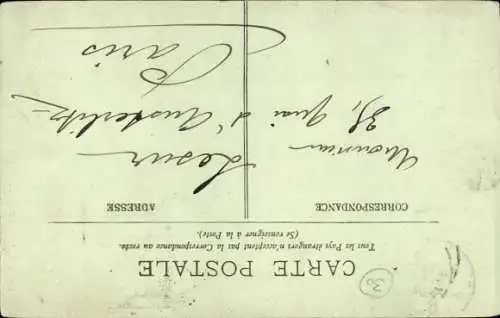 CARTE POSTALE
Tous les Pays étrangers n'acceptent pas la Correspondance au recto.
(Se renseigner à la Poste).
CORRESPONDANCE
ADRESSE
Monsieur
Lesur
35, Quai d'Austerlitz
Paris